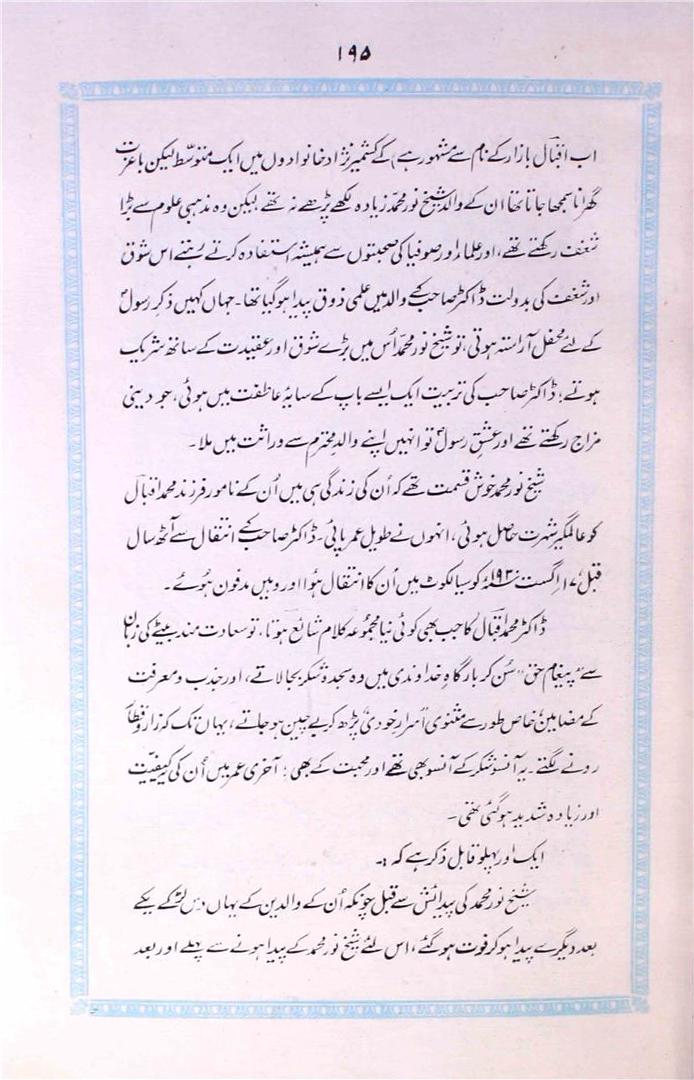 ۱۹۵
اب اقبالؔ بازار کے نام سے مشہور ہے) کے کشمیر نژاد خانوادوں میں ایک متوسّط لیکن باعزت
گھرانا سمجھا جاتا تھا ان کے والد شیخ نور محمدؐ زیادہ لکھے پڑھے نہ تھے لیکن وہ مذہبی علوم سے بڑا
شغف رکھتے تھے، اور علماء اور صوفیا کی صحبتوں سے ہمیشہ استفادہ کرتے رہتے اس شوق
اور شغف کی بدولت ڈاکٹر صاحب کے والد میں علمی ذوق پیدا ہو گیا تھا۔ جہاں کہیں ذکرِ رسولؐ
کے لئے محفل آراستہ ہوتی، تو شیخ نور محمدؐ اُس میں بڑے شوق اور عقیدت کے ساتھ شریک
ہوتے؛ ڈاکٹر صاحب کی تربیت ایک ایسے باپ کے سایۂ عاطفت میں ہوئی، جو دینی
مزاج رکھتے تھے اور عشقِ رسولؐ تو انہیں اپنے والدِ محترم سے وراثت میں ملا۔
شیخ نور محمد خوش قسمت تھے کہ اُن کی زندگی ہی میں اُن کے نامور فرزند محمد اقبالؔ
کو عالمگیر شہرت حاصل ہوئی، انہوں نے طویل عمر پائی۔ ڈاکٹر صاحب کے انتقال سے آٹھ سال
قبل ۱۷ اگست ۱۹۳۰ء کو سیالکوٹ میں اُن کا انتقال ہُوا اور وہیں مدفون ہُوئے۔
ڈاکٹر محمد اقبالؔ کا جب بھی کوئی نیا مجموعہ کلام شائع ہوتا، تو سعادت مند بیٹے کی زبان
سے "پیغامِ حق" سُن کر بارگاہِ خداوندی میں وہ سجدہ شکر بجالاتے، اور جذب و معرفت
کے مضامین خاص طور سے مثنوی اسرارِ خودی پڑھ کر بے چین ہو جاتے، یہاں تک کہ زار و قطار
رونے لگتے۔ یہ آنسو شکر کے آنسو بھی تھے اور محبت کے بھی؛ آخری عمر میں اُن کی یہ کیفیّت
اور زیادہ شدید ہو گئی تھی۔
ایک اور پہلو قابل ذکر ہے کہ :۔
شیخ نور محمد کی پیدائش سے قبل چونکہ اُن کے والدین کے یہاں دس لڑکے یکے
بعد دیگرے پیدا ہو کر فوت ہو گئے، اس لئے شیخ نور محمد کے پیدا ہونے سے پہلے اور بعد